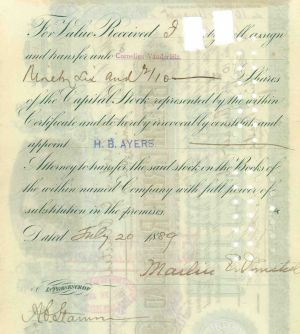 For Value Received I sell, assign
and transfer unto Cornelius Vanderbilt
Ninety Six and 9/10 Shares
of the Capital Stock represented by the within
Certificate and do hereby irrevocably constitute and
appoint H. B. AYERS.
Attorney to transfer the said stock on the Books of
the within named Company with full power of
substitution in the premises
Dated July 20 1889
IN PRESENCE OF